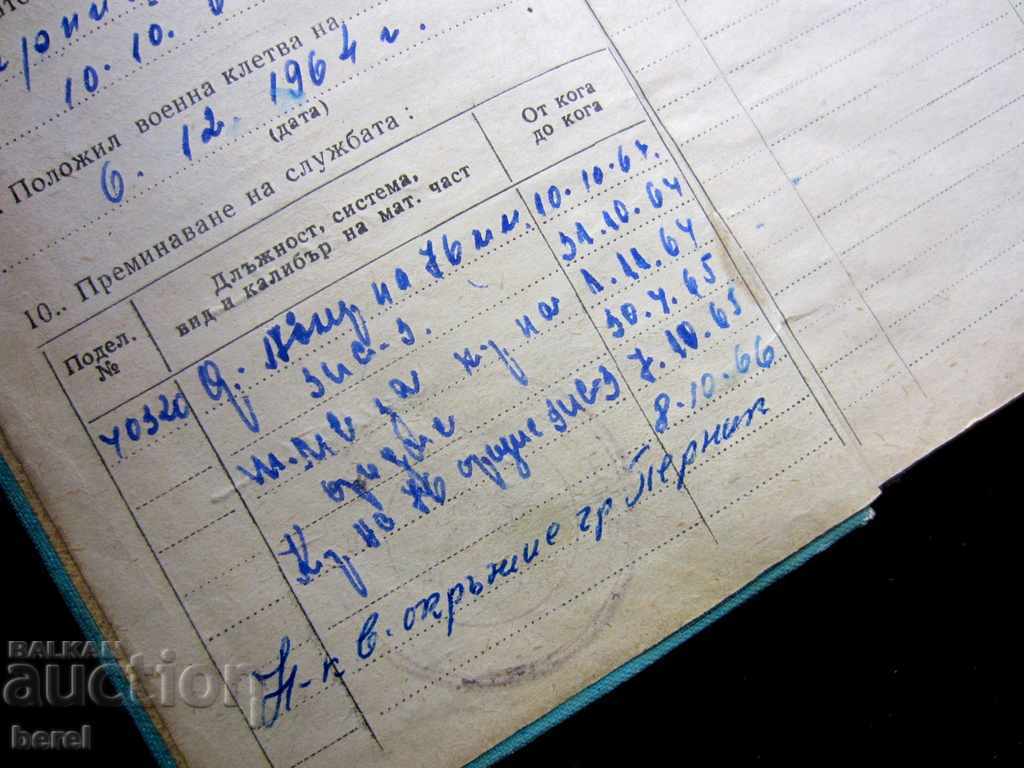 10. 10.
Положил военна клетва на
6. 12. 1964 г.
(дата)
10.. Преминаване на службата:
Подел. №
Длъжност, система, вид и калибър на мат. част
От кога до кога
40320
на 76 мм. 10.10.64.
Зис-3. 31.10.64
за к-р на 1.11.64
оръдие 30.4.65
К-р. на 76 оръдие Зис-3 7.10.65
8.10.66
Н-к в. окръжие гр Перник
BALKAN
auction
berel